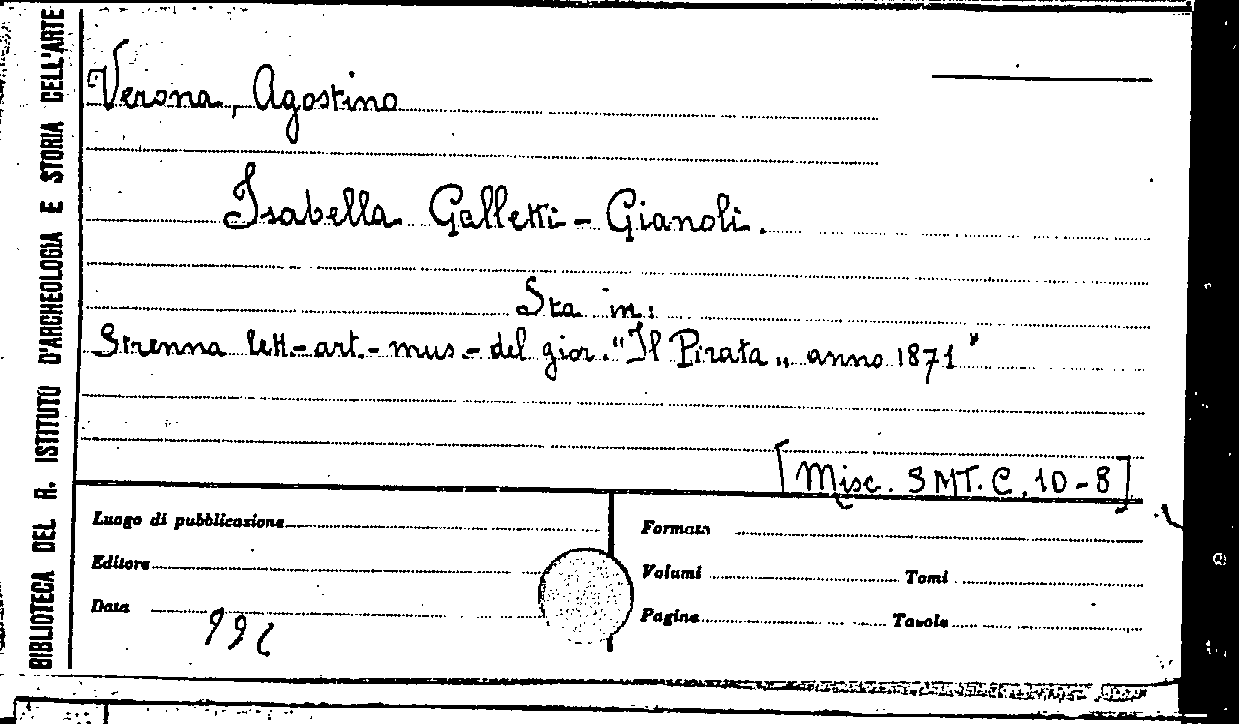 BIBLIOTECA DEL R. ISTITUTO D'ARCHEOLOGIA E STORIA DELL'ARTE
Verona, Agostino
Isabella Galletti - Gianoli.
Sta in:
Strenna lett-art.-mus.-del gior. "Il Pirata„ anno 1871"
[Misc. SMT. C. 10-8]
Luogo di pubblicazione
Editore
Data
Formato
Volumi Tomi
Pagine Tavole